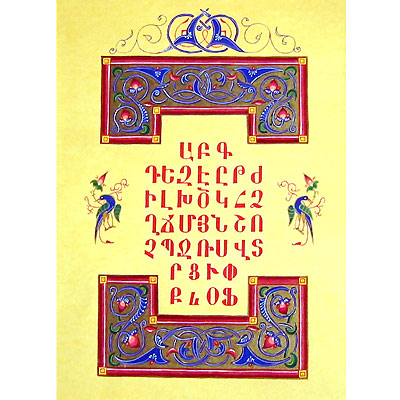 Ա Բ Գ
Դ Ե Զ Է Ը Թ Ժ
Ի Լ Խ Ծ Կ Հ Ձ
Ղ Ճ Մ Յ Ն Շ Ո
Չ Պ Ջ Ռ Ս Վ Տ
Ր Ց Ւ Փ
Ք և Օ Ֆ